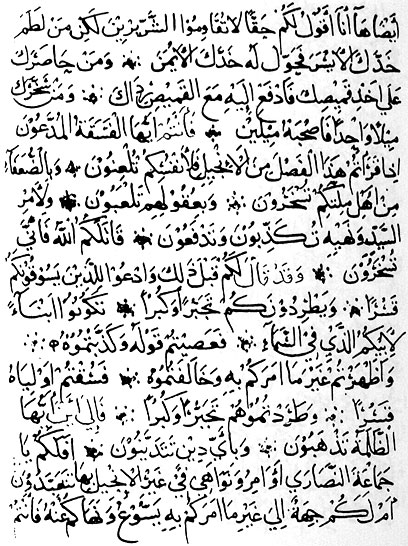 ايضا ها انا اقول لكم حقا لا تقاوموا الشريرين لكن من لطم
خدك الايسر فحول له خدك الايمن ومن حاصرك
على اخذ قميصك فادفع اليه مع القميص رداك ومن سخرك
ميلا واحدا فاصحبه ميلين فانتم ايها الفسقة المدعون
اذا قراتم هذا الفصل من الانجيل فلانفسكم تلعنون وبالضعفاء
من اهل ملتكم تسخرون وبعقولهم تلعبون ولامر
السيد ونهيه تكذبون وتدفعون قاتلكم الله فاني
تسخرون وقد قال لكم قبل ذلك وادعوا للذين يسوقونكم
قسرا ويطردونكم تجبرا وكبرا تكونوا ابناء
لابيكم الذي في السماء فعصيتم قوله وكذبتموه
واظهرتم غير ما امركم به وخالفتموه فسقتم اولياه
قسرا وطردتموهم تجبرا وكبرا فالى اين ايها
الظلمة تذهبون وباي دين تتدينون اقلكم يا
جماعة النصارى اوامر ونواهي في غير الانجيل بها تعتقدون
ام لكم جهة الى غير ما امركم به يسوع ونهاكم عنه فانتم